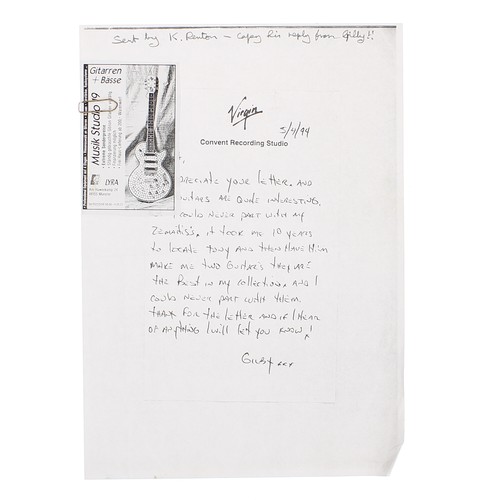 Sent by K. Renton - copy his reply from Gilby!!
Gitarren
+ Bässe
Musik Studio 19
LYRA
Virgin
5/4/94
Convent Recording Studio
PRECIATE YOUR LETTER. AND
UITARS ARE QUITE INTERESTING.
I COULD NEVER PART WITH MY
ZEMAITIS'S. IT TOOK ME 10 YEARS
TO LOCATE TONY AND THEN HAVE HIM
MAKE ME TWO GUITARS THEY ARE
THE BEST IN MY COLLECTION. AND I
COULD NEVER PART WITH THEM.
THANX FOR THE LETTER AND IF I HEAR
OF ANYTHING I WILL LET YOU KNOW!
GILBY